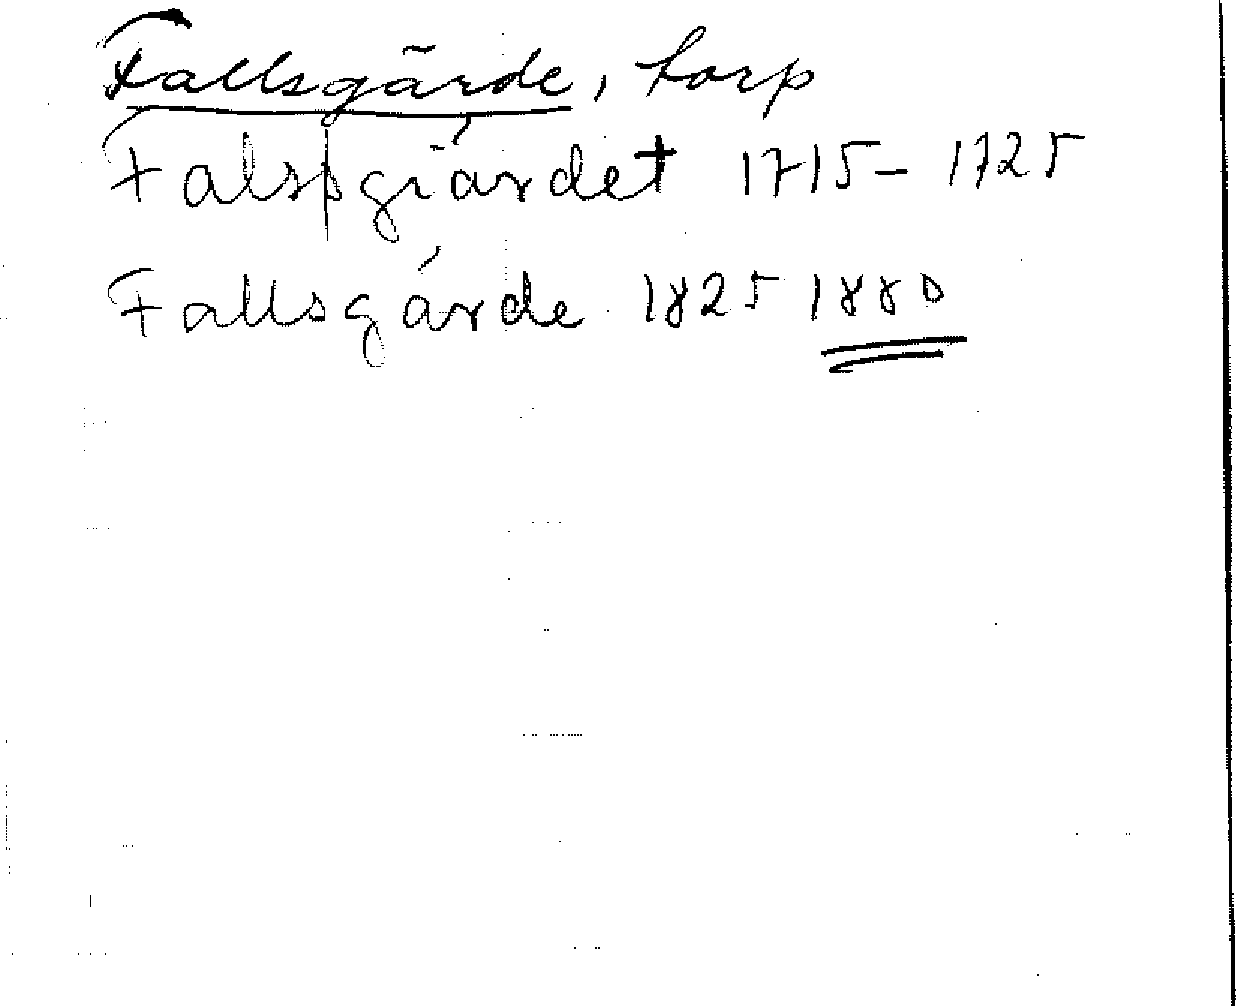 Fallsgärde, torp
Falsgiärdet 1715-1725
Fallsgärde 1825 1880